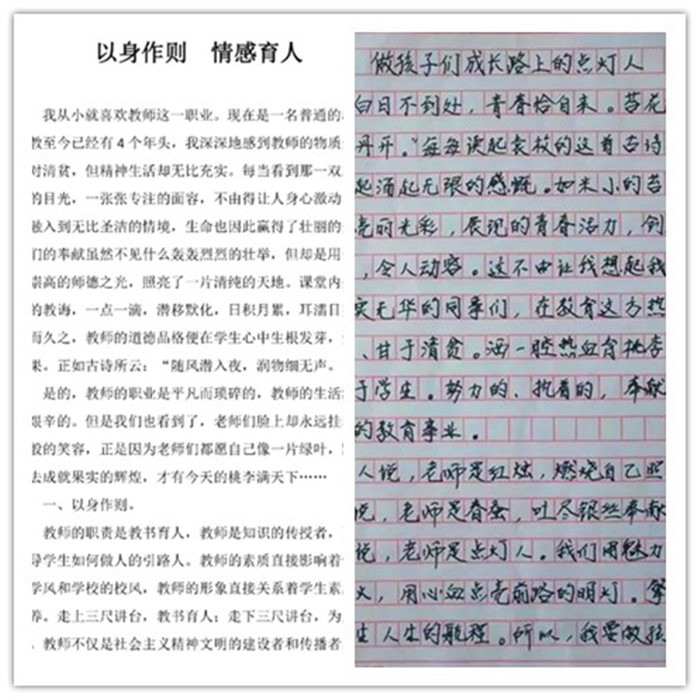 以身作则 情感育人
我从小就喜欢教师这一职业。现在是一名普通的
教至今已经有4个年头，我深深地感到教师的物质
对清贫，但精神生活却无比充实。每当看到那一双
的目光，一张张专注的面容，不由得让人身心激动
融入到无比圣洁的情境，生命也因此赢得了壮丽的
们的奉献虽然不见什么轰轰烈烈的壮举，但却是用
崇高的师德之光，照亮了一片清纯的天地。课堂内
的教诲，一点一滴，潜移默化，日积月累，耳濡目
而久之，教师的道德品格便在学生心中生根发芽，
果。正如古诗所云：“随风潜入夜，润物细无声。
是的，教师的职业是平凡而琐碎的，教师的生活
艰辛的。但是我们也看到了，老师们脸上却永远挂
般的笑容，正是因为老师们都愿自己像一片绿叶，
去成就果实的辉煌，才有今天的桃李满天下……
一、以身作则。
教师的职责是教书育人，教师是知识的传授者，
导学生如何做人的引路人。教师的素质直接影响着
学风和学校的校风，教师的形象直接关系着学生素
养。走上三尺讲台，教书育人；走下三尺讲台，为
。教师不仅是社会主义精神文明的建设者和传播者
做孩子们成长路上的点灯人
白日不到处，青春恰自来。苔花
丹开。”每每读起袁枚的这首古诗
起涌起无限的感慨。如米小的苔
亮丽光彩，展现的青春活力，创
，令人动容。这不由让我想起我
实无华的同事们，在教育这方热
、甘于清贫。洒一腔热血育桃李
于学生。努力的、执着的，奉献
的教育事业。
人说，老师是红烛，燃烧自己照
说，老师是春蚕，吐尽银丝奉献
说，老师是点灯人。我们用魅力
火，用心血点亮前路的明灯。擎
生人生的航程。所以，我要做孩